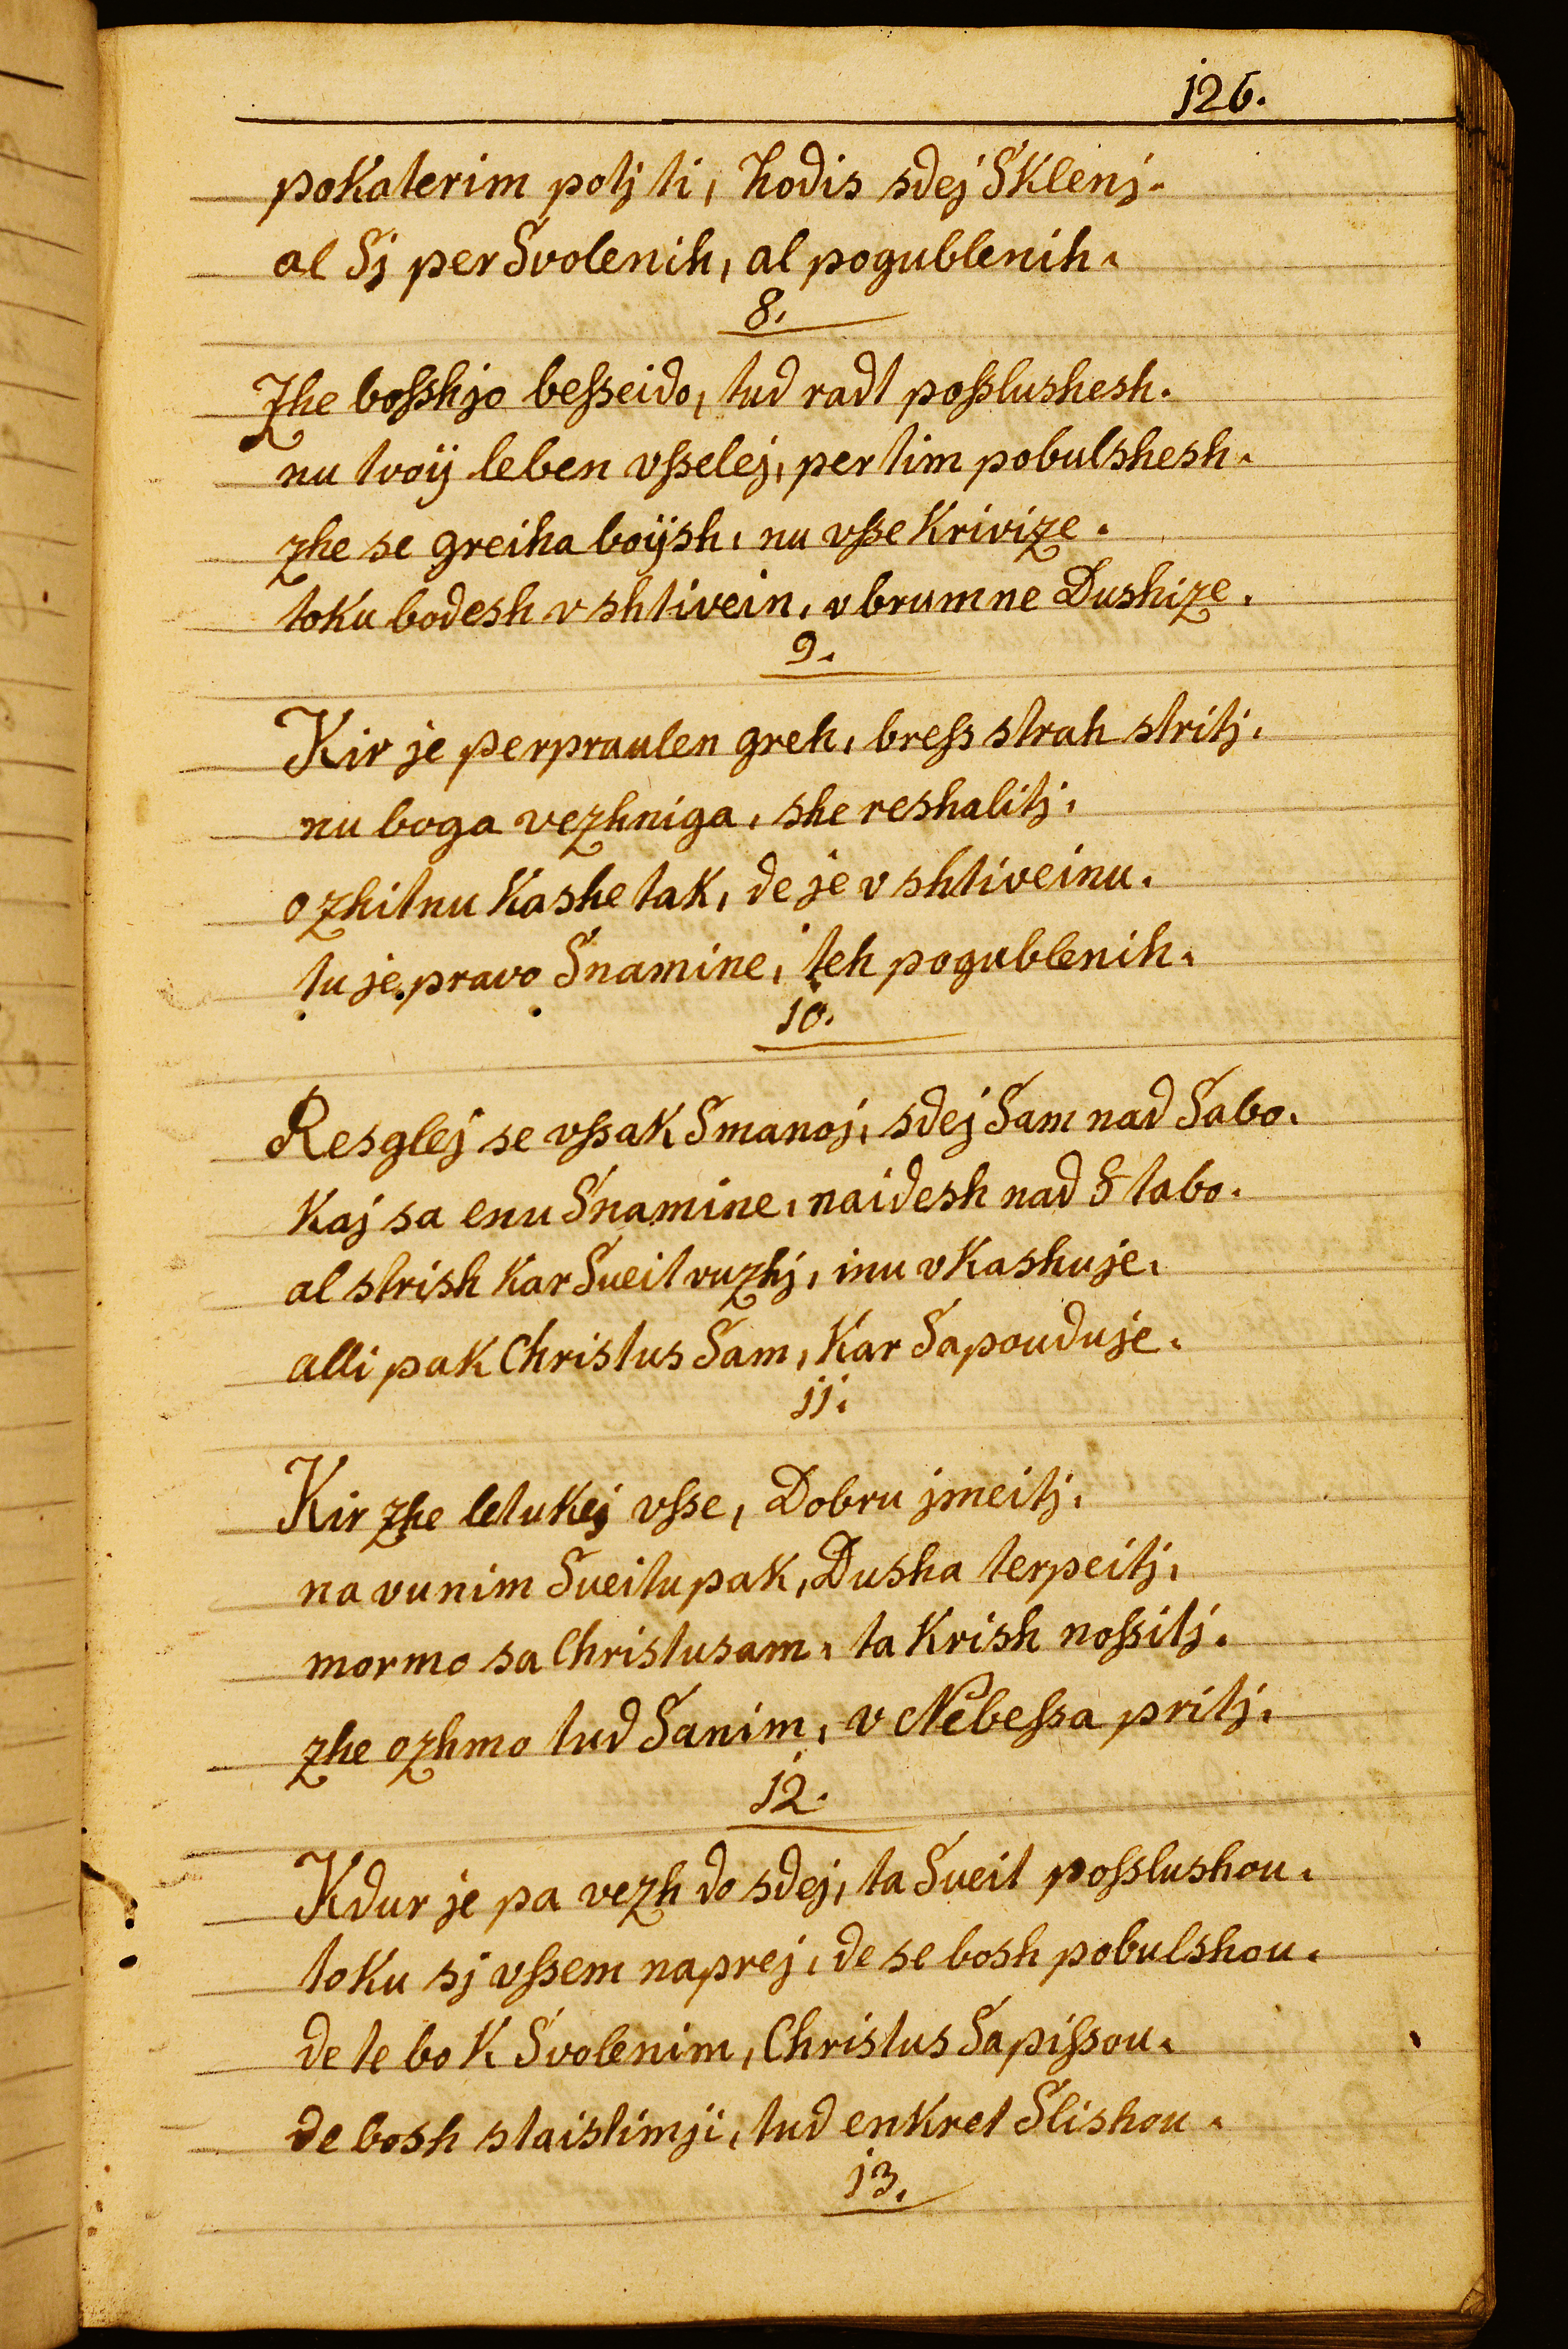 126.
pokaterim potj ti, hodis sdej Sklenj.
al Sj per Svolenih, al pogublenih.
8.
Zhe bosshjo besseido, tud radt posslushesh.
nu tvoÿ leben vsselej, per tim pobulshesh.
zhe se greiha boÿsh, nu vsse krivize.
toku bodesh v shtivein, v brumne Dushize.
9.
Kir je perpraulen greh, bress strah stritj.
nu boga vezhniga, she reshalitj.
ozhitnu kashe tak, de je v shtiveinu.
tu je pravo Snamine, teh pogublenih.
10.
Resglej se vssak Smanoj, sdej Sam nad Sabo.
kaj sa enu Snamine, naidesh nad S tabo.
al strish kar Sueit vuzhj, inu vkashuje.
alli pak Christus Sam, kar Sapouduje.
11.
Kir zhe letukej vsse, Dobru jmeitj.
na vunim Sueitu pak, Dusha terpeitj.
mormo sa Christusam, ta krish nossitj.
zhe ozhmo tud Sanim, v Nebessa pritj.
12.
Kdur je pa vezh do sdej, ta Sueit posslushou.
toku sj vssem naprej, de se bosh pobulshou.
de te bo k Svolenim, Christus Sapissou.
de bosh staistimji, tud enkret Slishou.
13.